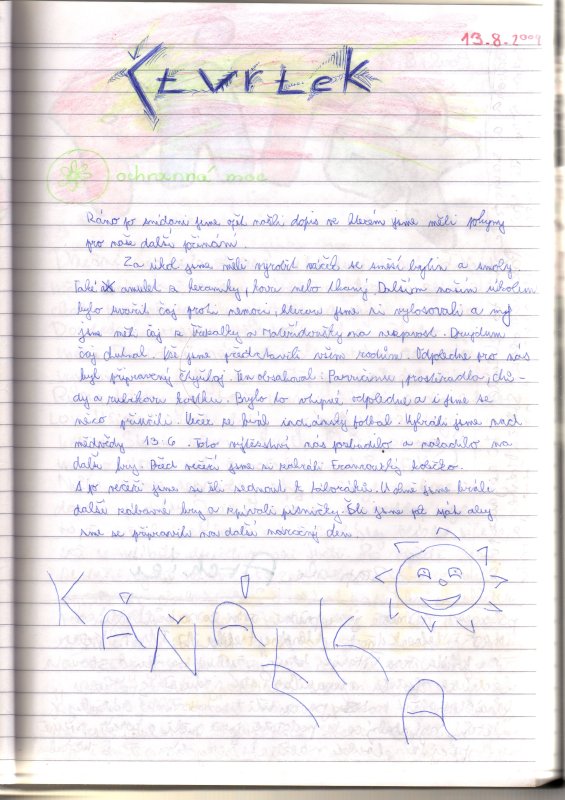 13.8.2009
Čtvrtek
ochranná moc
Ráno po snídani jsme opět našli dopis ve kterém jsme měli pokyny
pro naše další přináni.
Za úkol jsme měli vyrobit váček se směsí bylin a smoly.
Také amulet z keramiky, kovu nebo tkaný. Dalším naším úkolem
bylo uvařit čaj proti nemoci, kterou jsme si vylosovali a my
jsme měli čaj z Třezalky a Mateřídoušky na nespavost.
čaj chutnal. Vše jsme představili všem rodům. Odpoledne pro nás
byl připravený čtyřboj. Ten obsahoval: Parničema, prostěradla, chů-
dy a rubikovu kostku. Bylo to vtipné odpoledne a i jsme se
něco přiučili. Večer se hrál indiánský fotbal. Vyhráli jsme nad
medvědy 13:6. Toto vítězství nás povzbudilo a naladilo na
další hry. Před večeří jsme si zahráli Francouzský kolečko.
A po večeři jsme si šli sednout k táboráku. U ohně jsme hráli
další zábavné hry a zpívali písničky. Šli jsme pak spát aby
sme se připravili na další náročný den.
KÁŇÁĽKA